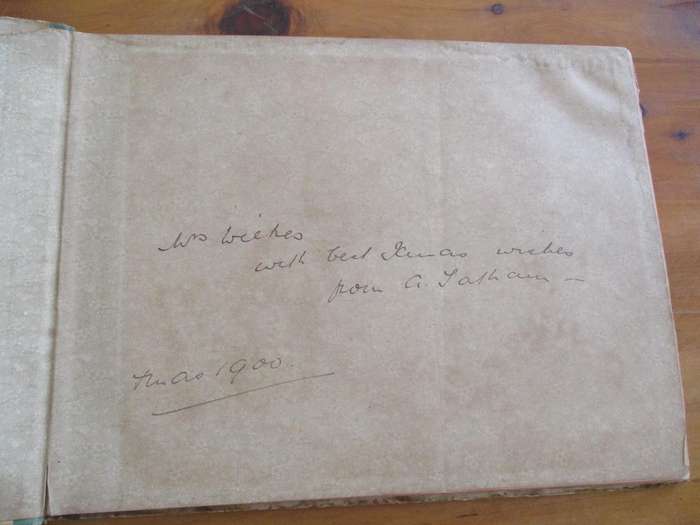 Mrs Wickes
with best Xmas wishes
from A. Latham —
Xmas 1900.